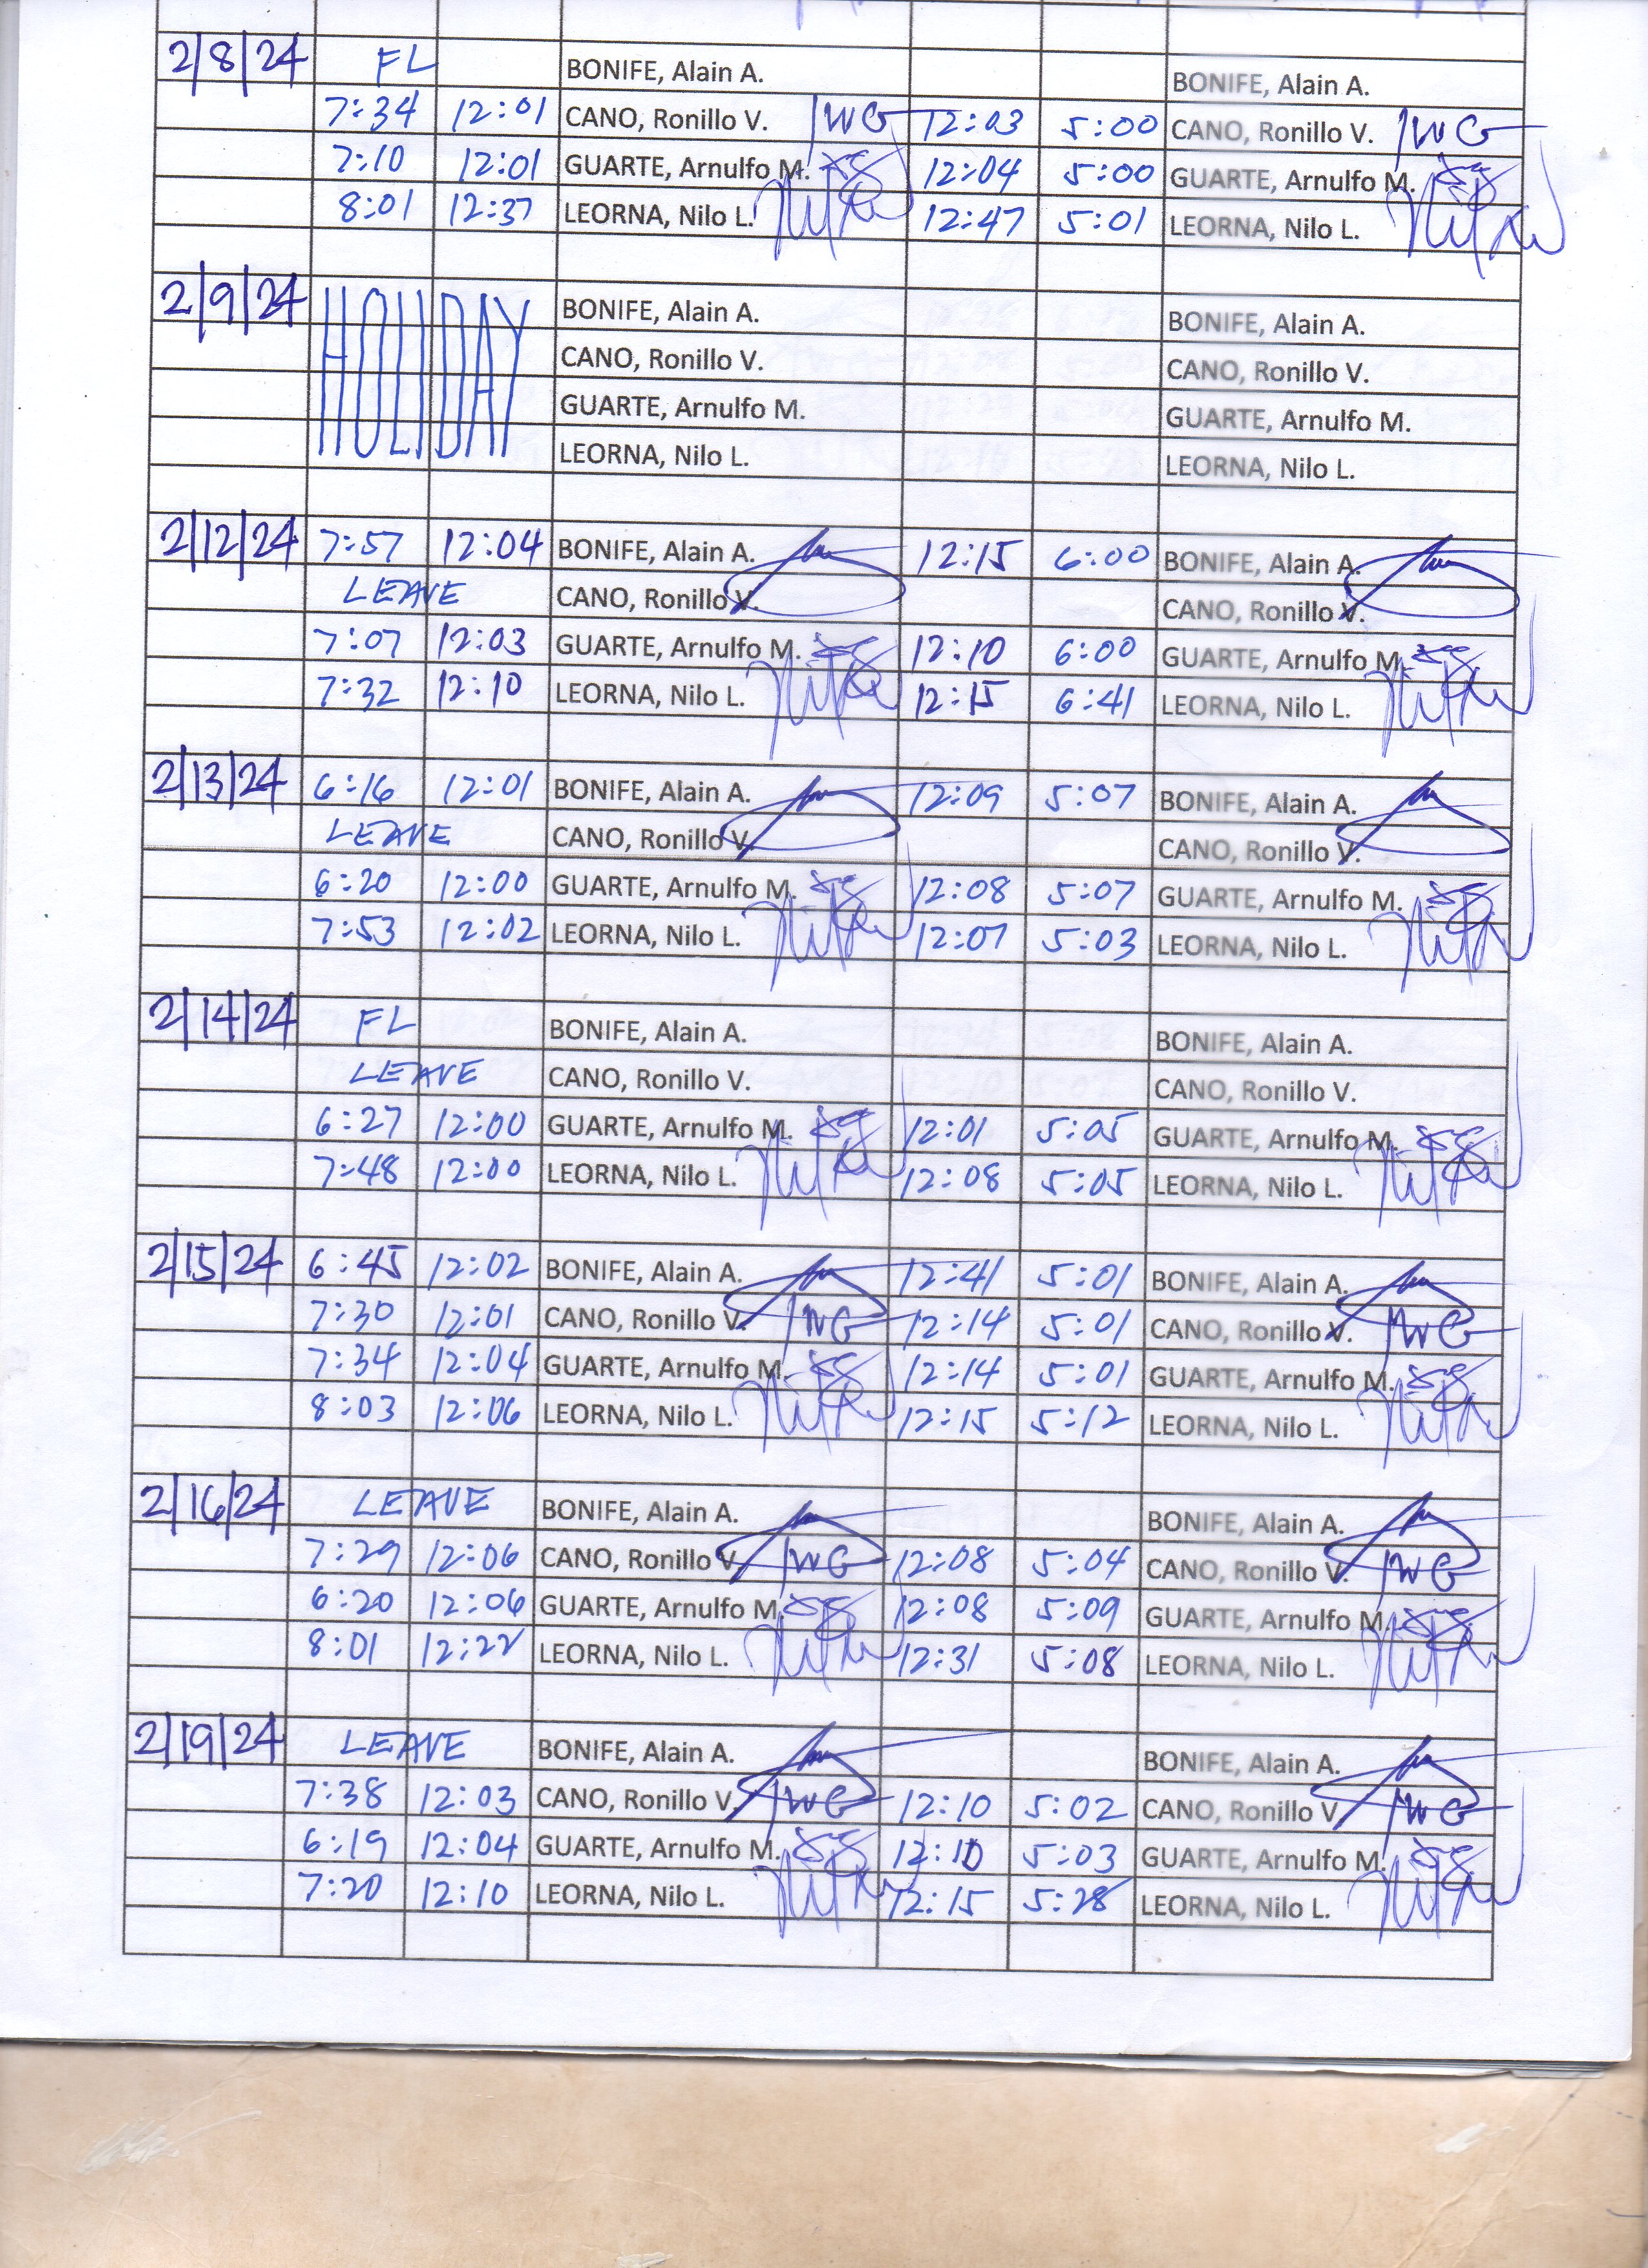 2/8/24 FL BONIFE, Alain A. BONIFE, Alain A.
7:34 12:01 CANO, Ronillo V. 12:03 5:00 CANO, Ronillo V.
7:10 12:01 GUARTE, Arnulfo M. 12:04 5:00 GUARTE, Arnulfo M.
8:01 12:37 LEORNA, Nilo L. 12:47 5:01 LEORNA, Nilo L.
2/9/24 HOLIDAY BONIFE, Alain A. BONIFE, Alain A.
CANO, Ronillo V. CANO, Ronillo V.
GUARTE, Arnulfo M. GUARTE, Arnulfo M.
LEORNA, Nilo L. LEORNA, Nilo L.
2/12/24 7:57 12:04 BONIFE, Alain A. 12:15 6:00 BONIFE, Alain A.
LEAVE CANO, Ronillo V. CANO, Ronillo V.
7:07 12:03 GUARTE, Arnulfo M. 12:10 6:00 GUARTE, Arnulfo M.
7:32 12:10 LEORNA, Nilo L. 12:15 6:41 LEORNA, Nilo L.
2/13/24 6:16 12:01 BONIFE, Alain A. 12:09 5:07 BONIFE, Alain A.
LEAVE CANO, Ronillo V. CANO, Ronillo V.
6:20 12:00 GUARTE, Arnulfo M. 12:08 5:07 GUARTE, Arnulfo M.
7:53 12:02 LEORNA, Nilo L. 12:07 5:03 LEORNA, Nilo L.
2/14/24 FL BONIFE, Alain A. BONIFE, Alain A.
LEAVE CANO, Ronillo V. CANO, Ronillo V.
6:27 12:00 GUARTE, Arnulfo M. 12:01 5:05 GUARTE, Arnulfo M.
7:48 12:00 LEORNA, Nilo L. 12:08 5:05 LEORNA, Nilo L.
2/15/24 6:45 12:02 BONIFE, Alain A. 12:41 5:01 BONIFE, Alain A.
7:30 12:01 CANO, Ronillo V. 12:14 5:01 CANO, Ronillo V.
7:34 12:04 GUARTE, Arnulfo M. 12:14 5:01 GUARTE, Arnulfo M.
8:03 12:06 LEORNA, Nilo L. 12:15 5:12 LEORNA, Nilo L.
2/16/24 LEAVE BONIFE, Alain A. BONIFE, Alain A.
7:29 12:06 CANO, Ronillo V. 12:08 5:04 CANO, Ronillo V.
6:20 12:06 GUARTE, Arnulfo M. 12:08 5:09 GUARTE, Arnulfo M.
8:01 12:22 LEORNA, Nilo L. 12:31 5:08 LEORNA, Nilo L.
2/19/24 LEAVE BONIFE, Alain A. BONIFE, Alain A.
7:38 12:03 CANO, Ronillo V. 12:10 5:02 CANO, Ronillo V.
6:19 12:04 GUARTE, Arnulfo M. 12:10 5:03 GUARTE, Arnulfo M.
7:20 12:10 LEORNA, Nilo L. 12:15 5:28 LEORNA, Nilo L.